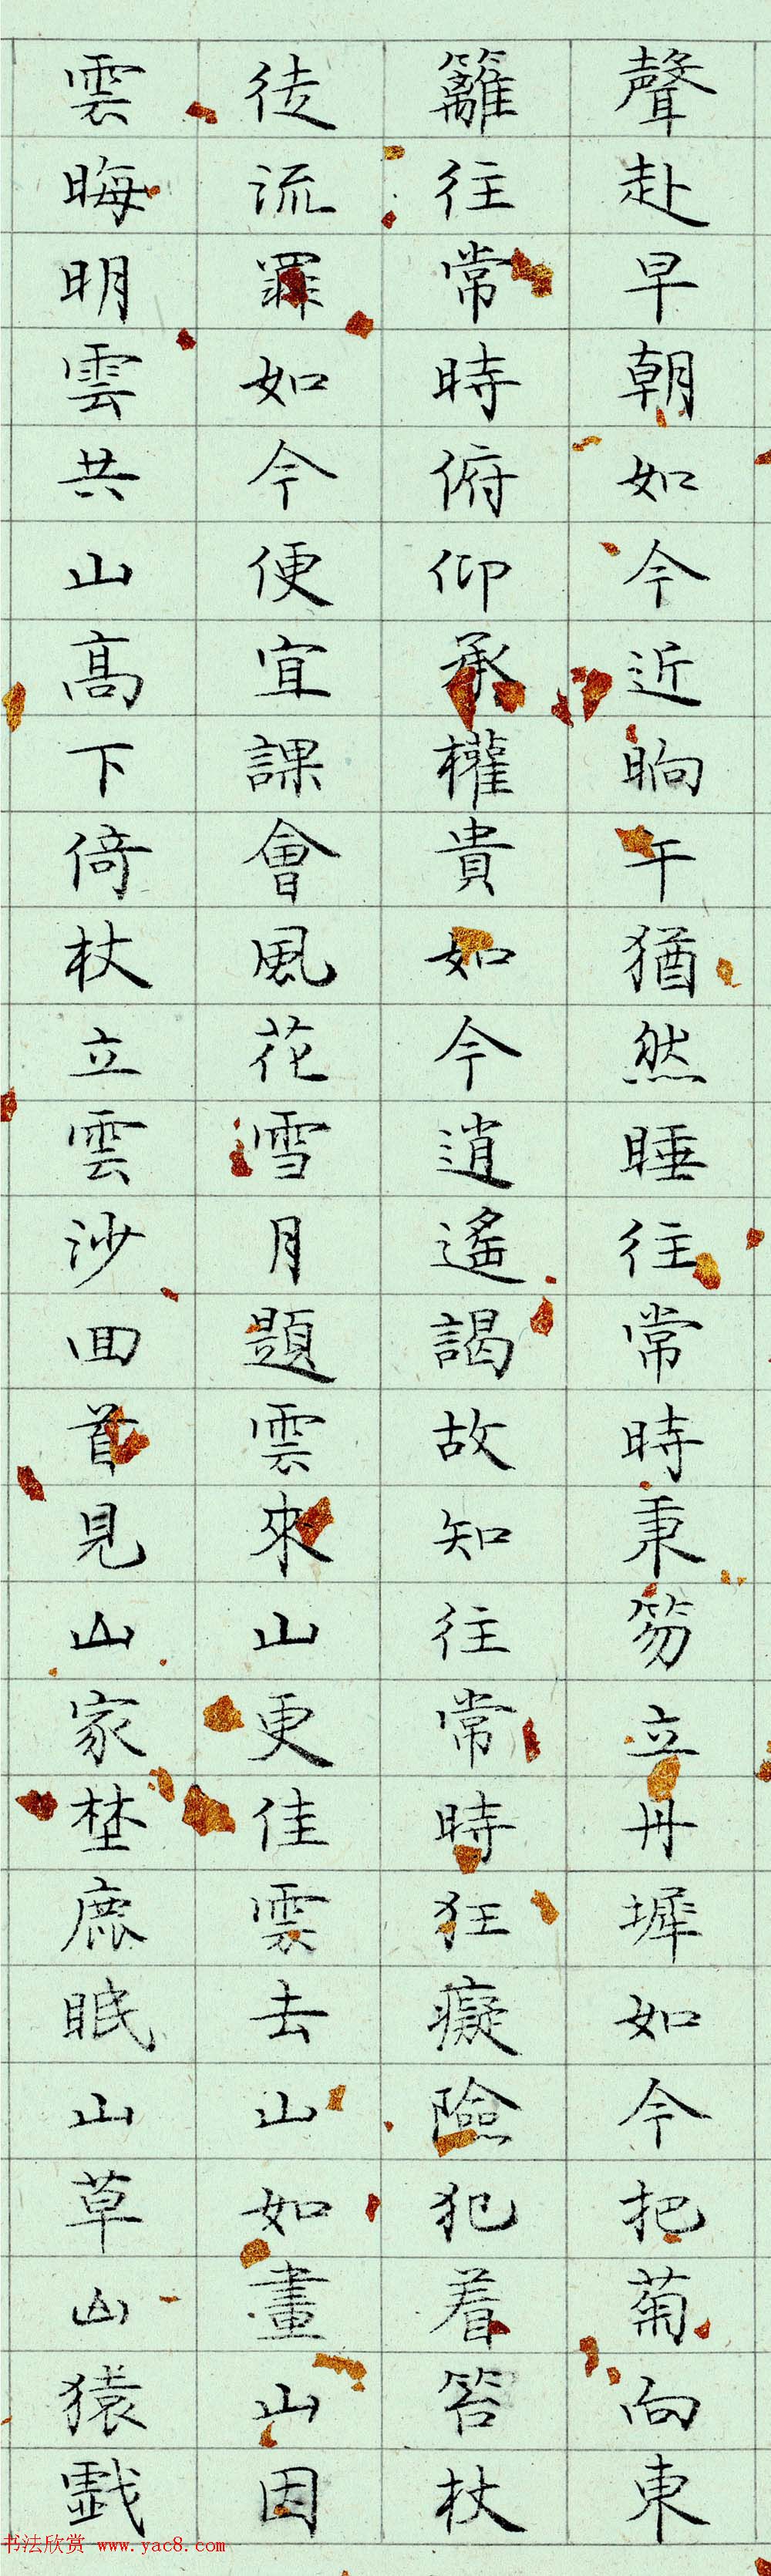 聲赴早朝如今近晌午猶然睡往常時秉笏立丹墀如今把菊向東
籬往常時俯仰承權貴如今逍遙謁故知往常時狂癡險犯着笞杖
徒流罪如今便宜課會風花雪月題雲來山更佳雲去山如畫山因
雲晦明雲共山高下倚杖立雲沙回首見山家埜鹿眠山草山猿戲
书法欣赏 www.yac8.com